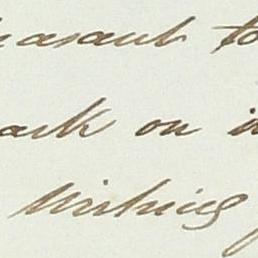 easant to
ark on i
writing